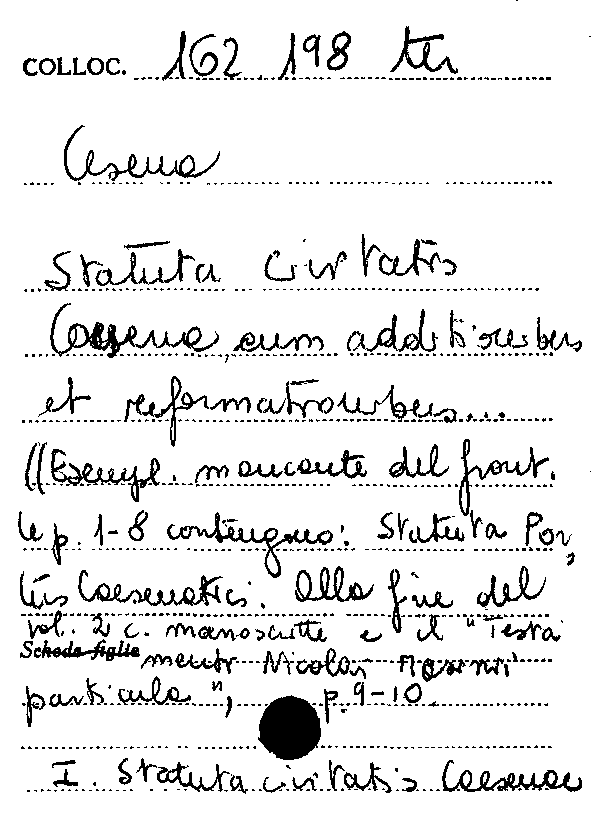 COLLOC. 162.198 ter
Cesena
Statuta civitatis
Caesenae, cum additionibus
et reformationibus...
((Esempl. mancante del front.
le p. 1-8 contengono: Statuta Por,
tus Caesenatici. Alla fine del
vol. 2 c. manoscritte e il "Testa
Scheda figlia menti Nicolai particula", p. 9-10.
I. Statuta civitatis Caesenae